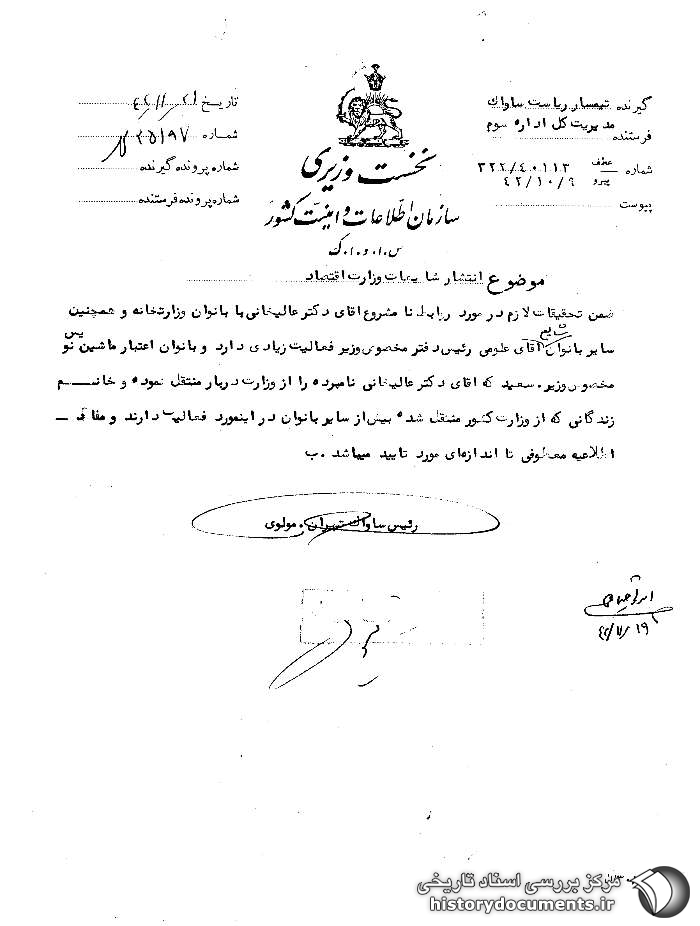 گیرنده تیمسار ریاست ساواک
مدیریت کل اداره سوم
فرستنده
شماره عطف ۳۲۲/۴۰۱۱۳
پیرو ۴۲/۱۰/۹
پیوست
تاریخ
شماره ۲۵۱۹۷
شماره پرونده گیرنده
شماره پرونده فرستنده
نخست وزیری
سازمان اطلاعات و امنیت کشور
س.ا.و.ا.ک
موضوع انتشار شایعات وزارت اقتصاد
ضمن تحقیقات لازم در مورد روابط نا مشروع اقای دکتر عالیخانی با بانوان وزارتخانه و همچنین
سایر بانوان آقای علومی رئیس دفتر مخصوص وزیر فعالیت زیادی دارد و بانوان اعتبار ماشین نویس
مخصوص وزیر . سعید که اقای دکتر عالیخانی نامبرده را از وزارت دربار منتقل نموده و خانم
زندگانی که از وزارت کشور منتقل شده بیش از سایر بانوان در اینمورد فعالیت دارند و مفاد
اطلاعیه معطوفی تا اندازه‌ای مورد تایید میباشد . ب
رئیس ساواک تهران . مولوی
مرکز بررسی اسناد تاریخی
historydocuments.ir